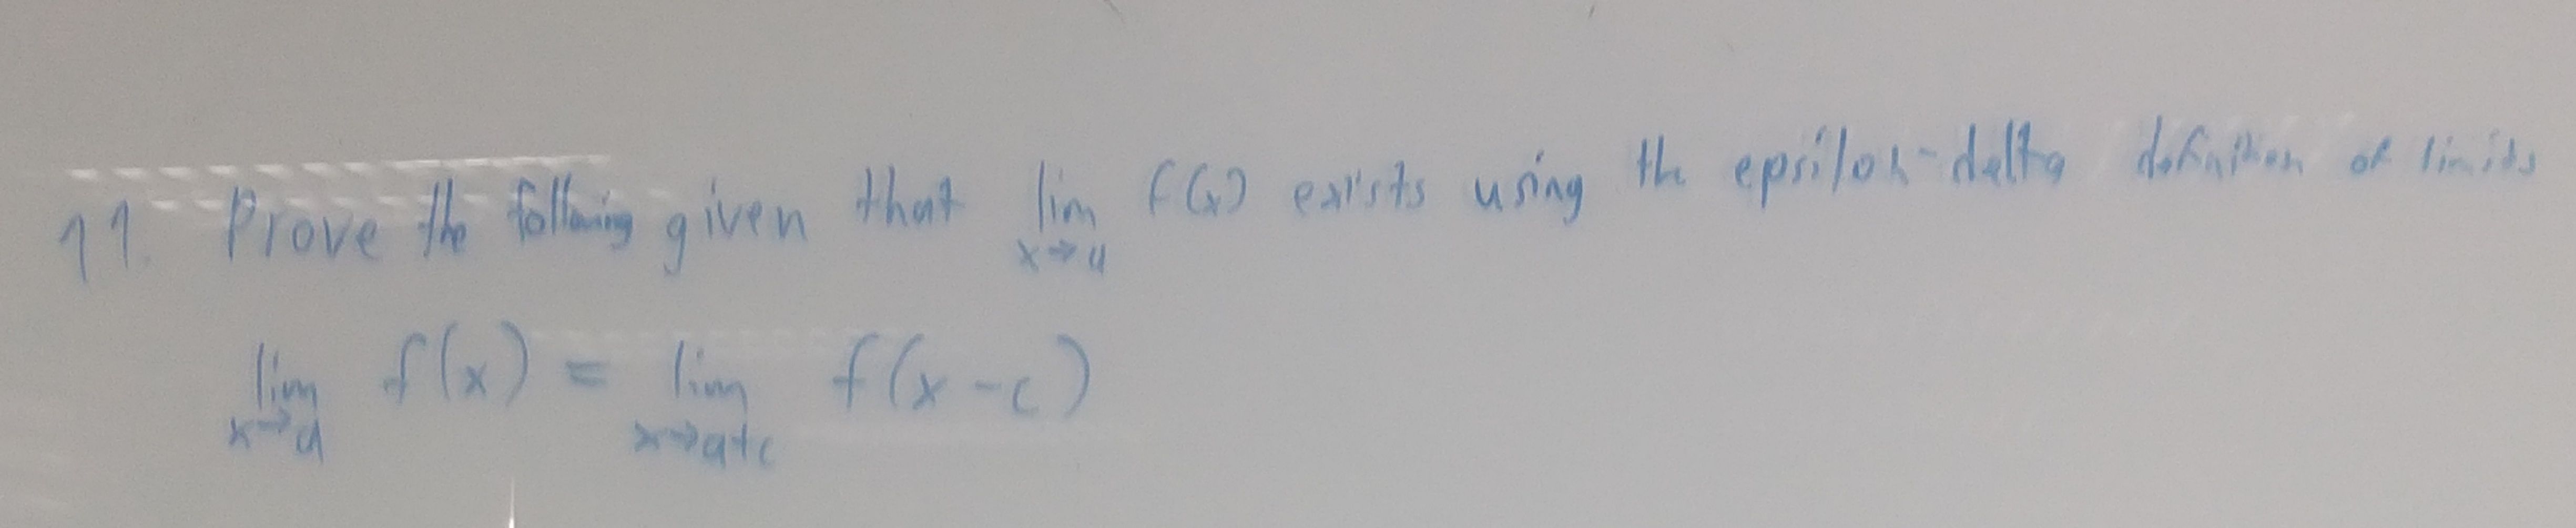 11. Prove the following given that lim x→a f(x) exists using the epsilon-delta definition of limits
lim x→a f(x) = lim x→a+c f(x-c)